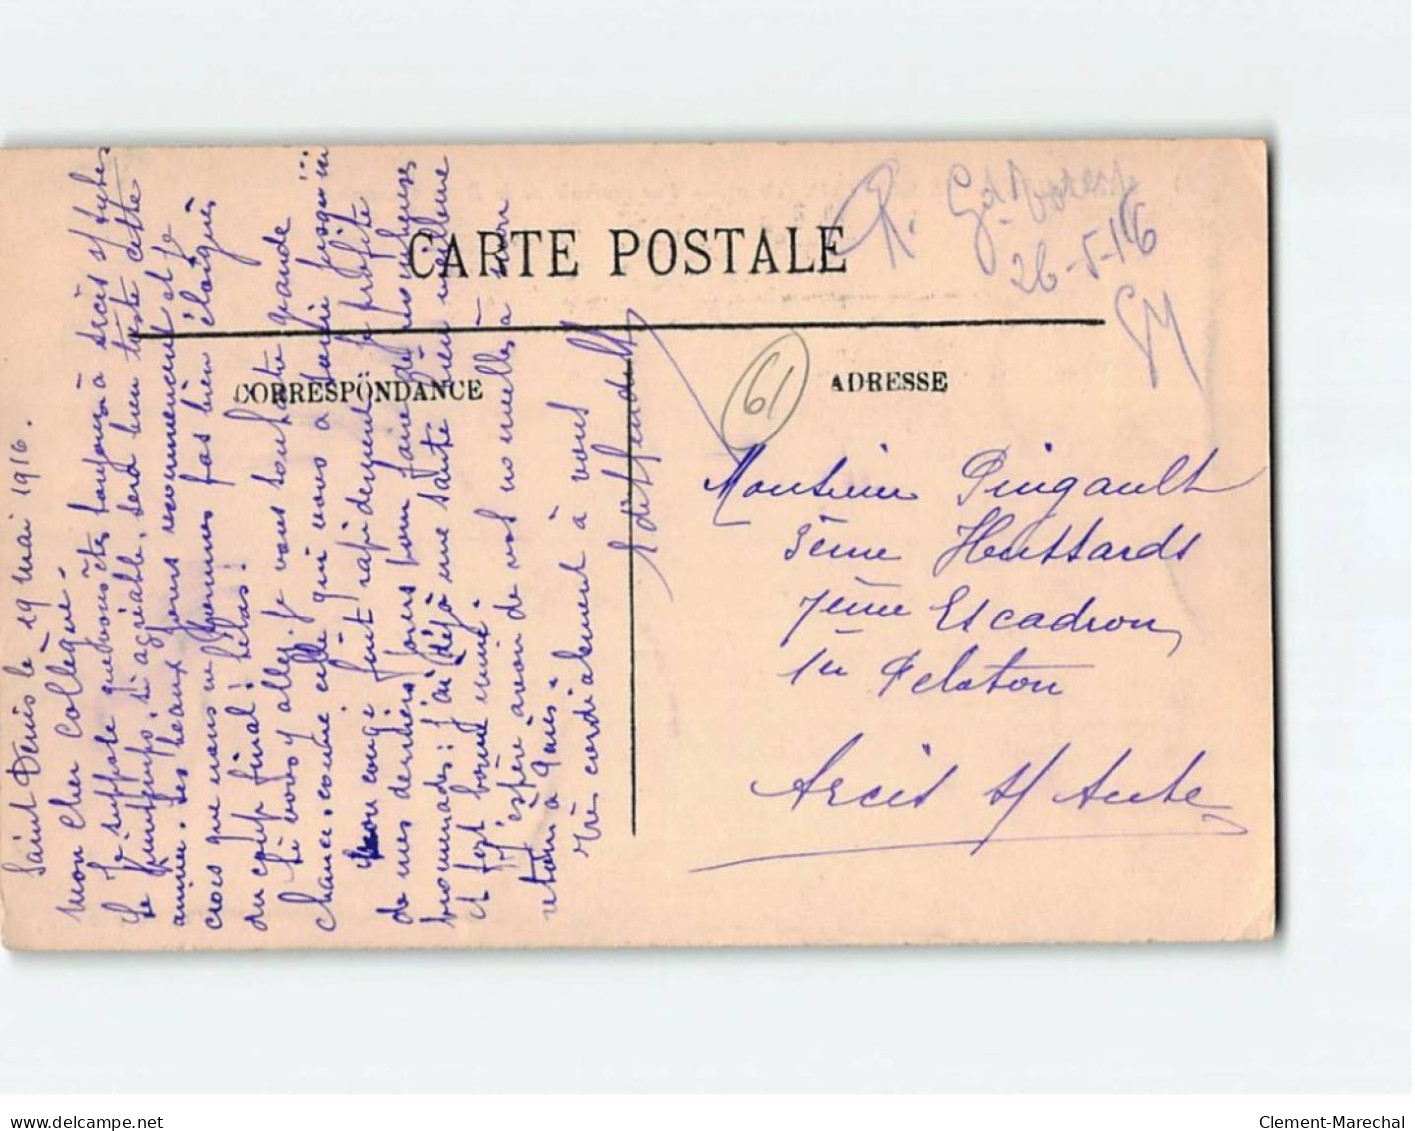 CARTE POSTALE
CORRESPONDANCE
ADRESSE
R. Gd
26-5-16
61
Monsieur Pingault
3ème Hussards
7ème Escadron
1er Peloton
Arcis s/ Aube
Saint Denis le 19 mai 1916.
Mon cher collègue.
Je suppose que vous êtes toujours à Arcis s/ Aube
Le printemps, si agréable, sera bien triste cette
année. Les beaux jours recommencent et je
crois que nous ne sommes pas bien éloignés
du coup final! hélas!
Si vous y allez, je vous souhaite grande
chance, comme celle qui vous a suivi jusqu'ici
Mon congé finit rapidement. Je profite
de mes derniers jours pour faire de nombreuses
promenades; j'ai déjà une santé bien meilleure
et fort bonne mine.
J'espère avoir de vos nouvelles à mon
retour à
Très cordialement à vous